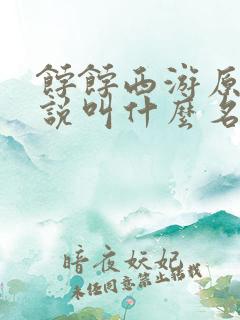 餑餑西游原
說叫什麼名
暗夜妖妃
未经同意禁止转载